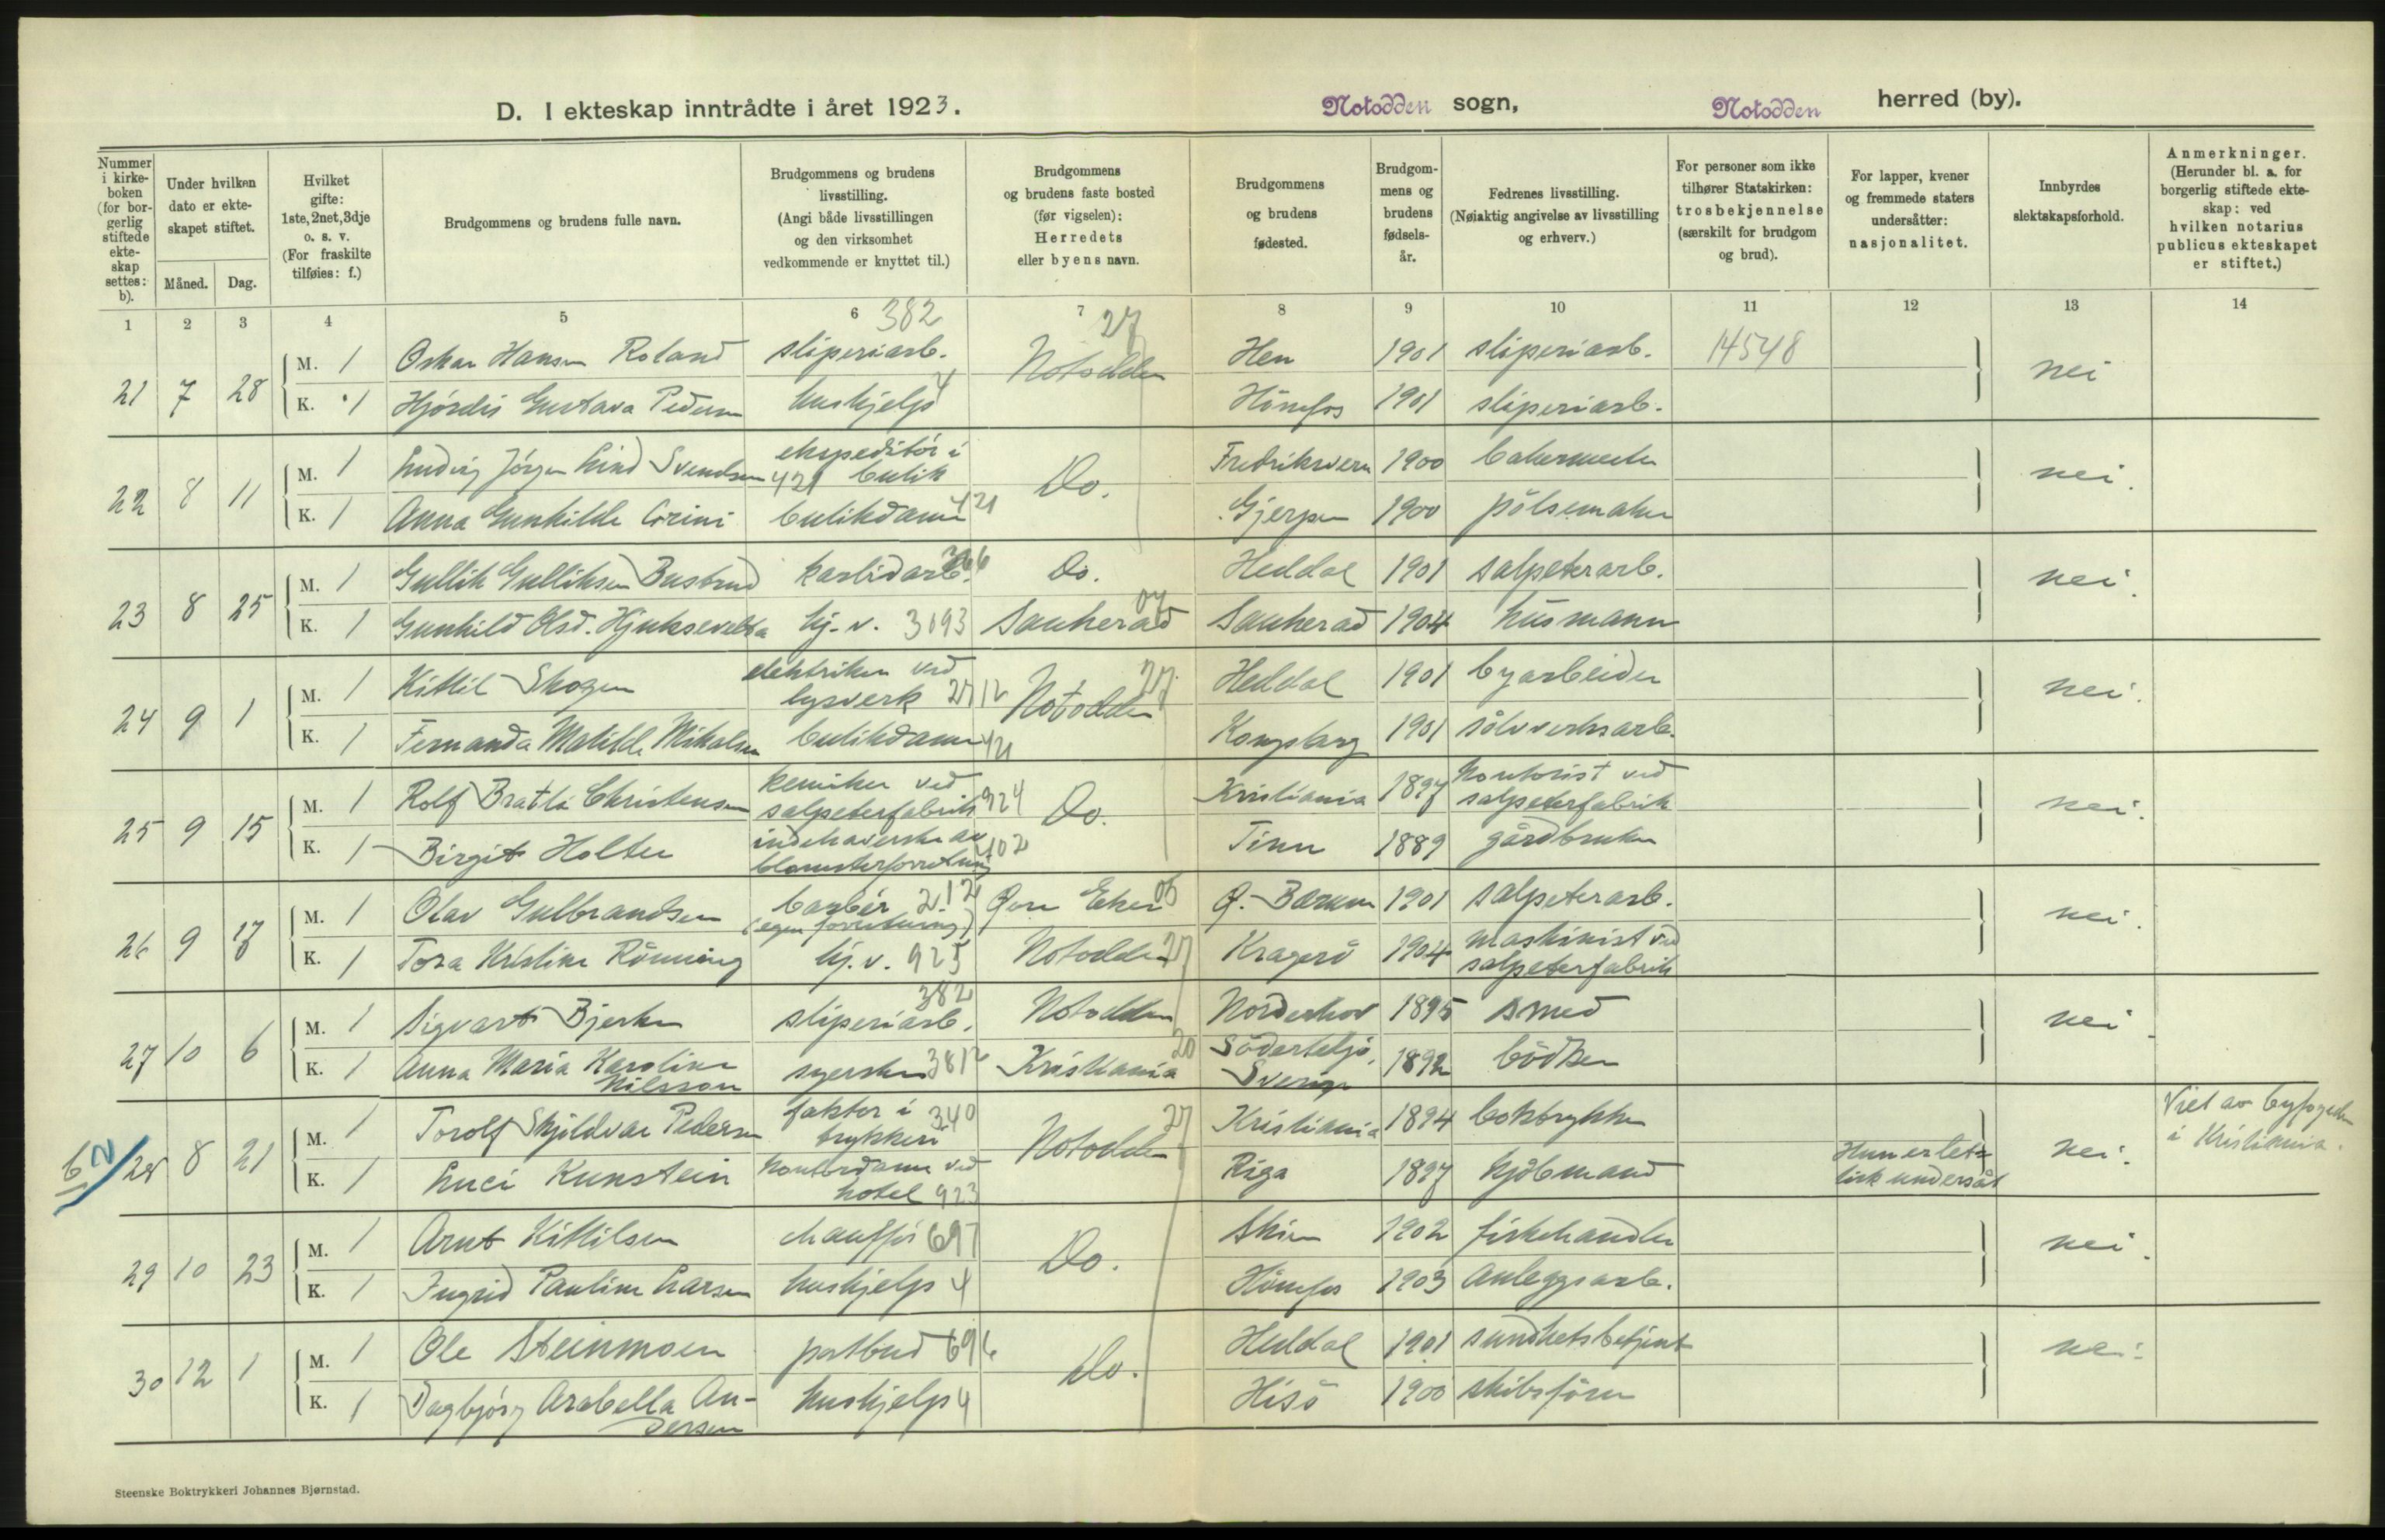 D. I ekteskap inntrådte i året 1923.
Notodden sogn,
Notodden herred (by).
Nummer i kirkeboken (for borgerlig stiftede ekteskap settes: b).
Under hvilken dato er ekteskapet stiftet.
Måned.
Dag.
Hvilket gifte: 1ste, 2net, 3dje o. s. v. (For fraskilte tilføies: f.)
Brudgommens og brudens fulle navn.
Brudgommens og brudens livsstilling. (Angi både livsstillingen og den virksomhet vedkommende er knyttet til.)
Brudgommens og brudens faste bosted (før vigselen): Herredets eller byens navn.
Brudgommens og brudens fødested.
Brudgommens og brudens fødselsår.
Fedrenes livsstilling. (Nøiaktig angivelse av livsstilling og erhverv.)
For personer som ikke tilhører Statskirken: trosbekjennelse (særskilt for brudgom og brud).
For lapper, kvener og fremmede staters undersåtter: nasjonalitet.
Innbyrdes slektskapsforhold.
Anmerkninger. (Herunder bl. a. for borgerlig stiftede ekteskap: ved hvilken notarius publicus ekteskapet er stiftet.)
1 2 3 4 5 6 7 8 9 10 11 12 13 14
382 27
21 7 28 M. 1 Oskar Hansen Roland sliperiarb. Notodden Hen 1901 sliperiarb. 14548 nei
K. 1 Hjørdis Gustava Pedersen hushjelp 4 Hönefos 1901 sliperiarb.
22 8 11 M. 1 Ludvig Jörgen Lind Svendsen ekspeditör i butik 421 Do. Fredriksvern 1900 bakermester nei.
K. 1 Anna Gunhilde Corini butikdame 421 Gjerpen 1900 pölsemaker
23 8 25 M. 1 Gullik Gulliksen Busbrud karbidarb. Do. Heddal 1901 salpeterarb. nei.
K. 1 Gunhild Olsd. Hjukseveltа hj. v. 3093 Sauherad 07 Sauherad 1904 husmann
24 9 1 M. 1 Kittil Skogen elektriker ved lysverk 2712 Notodden 27 Heddal 1901 byarbeider nei.
K. 1 Fernanda Matilde Mikalsen butikdame 421 Kongsberg 1901 sölvverksarb.
25 9 15 M. 1 Rolf Bratli Christensen kemiker ved salpeterfabrik 924 Do. Kristiania 1897 kontorist ved salpeterfabrik nei.
K. 1 Birgit Holter indehaverske av blomsterforretning 402 Tinn 1889 gårdbruker
26 9 17 M. 1 Olav Gulbrandsen barber 212 (egen forretning) Övre Eker 06 Ö. Bærum 1901 salpeterarb. nei.
K. 1 Tora Kristine Rönning hj. v. 925 Notodden 27 Kragerö 1904 maskinist ved salpeterfabrik
27 10 6 M. 1 Sigvart Bjerke sliperiarb. 382 Notodden Norderhov 1895 smed nei
K. 1 Anna Maria Karolina Nilsson syerske 3812 Kristiania 20 Södertelje, Sverige 1892 bödker
62 28 8 21 M. 1 Torolf Skjoldvar Pedersen faktor i trykkeri 340 Notodden 27 Kristiania 1894 boktrykker nei. Viet av byfogden i Kristiania.
K. 1 Luci Kunstein kontordame ved hotel 923 Riga 1897 kjöbmand Hun er letisk undersåt
29 10 23 M. 1 Arnt Kittilsen chaufför 697 Do. Skien 1902 fiskehandler nei.
K. 1 Ingrid Pauline Larsen hushjelp 4 Hönefos 1903 anleggsarb.
30 12 1 M. 1 Ole Steinmoen postbud 696 Do. Heddal 1901 sundhetsbetjent nei.
K. 1 Dagbjörg Arabella Andersen hushjelp 4 Hisö 1900 skibsförer
Steenske Boktrykkeri Johannes Bjørnstad.